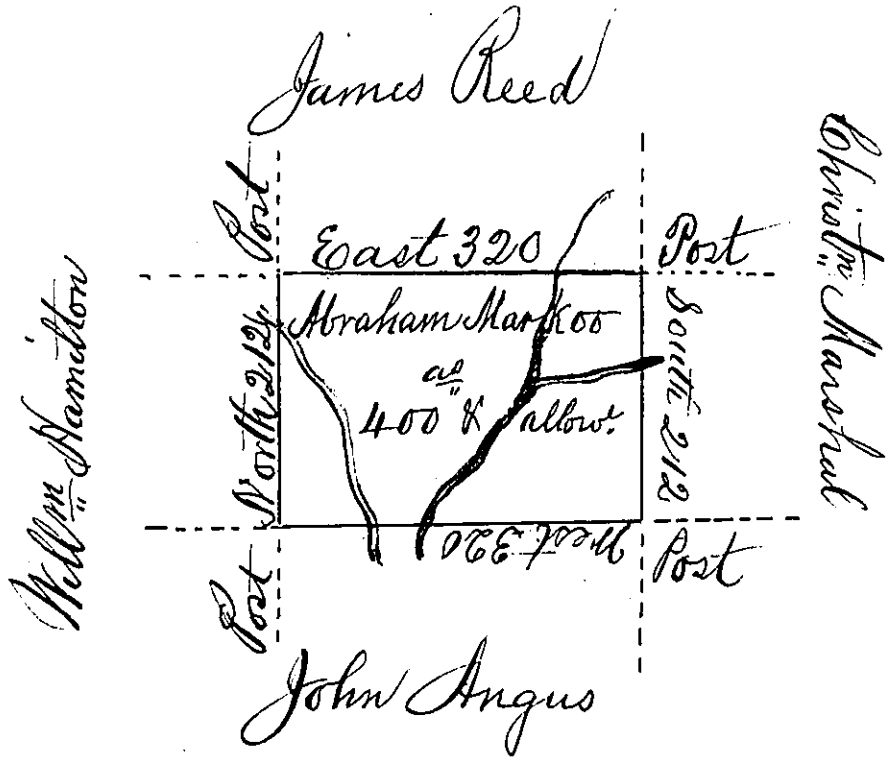 James Reed
Post
East 320
Post
Christn Marshal
Willm Hamilton
North 212
Abraham Markoo
as
400 & allowe.
South 212
West 320
Post
Post
John Angus